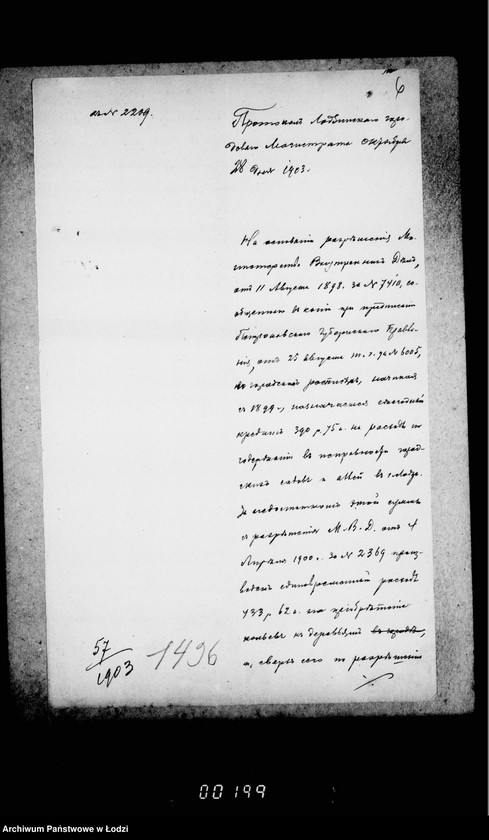 6
къ № 2219.
Протоколъ Лодзинскаго горо-
доваго Магистрата Октября
28 дня 1903.
На основаніи разрѣшенія Ми-
нистерства Внутреннихъ Дѣлъ,
отъ 11 Августа 1898. за № 7410, со-
общеннаго въ копіи при предписаніи
Петроковскаго Губернскаго Правле-
нія, отъ 25 августа т. г. за № 6005,
въ городской росписи, начиная
съ 1899 г., назначается ежегодный
кредитъ 390 р. 75 к. на расходы по
содержанію въ исправности город-
скихъ садовъ и аллей въ г. Лодзи.
За недостаткомъ этой суммы
съ разрѣшенія М. В. Д. отъ 4
Апрѣля 1900 г. за № 2369 произ-
веденъ единовременный расходъ
433 р. 62 к. на пріобрѣтеніе
кольевъ къ деревьямъ въ городѣ,
а, сверхъ сего по разрѣшенію
57
1903
1496
00199
Archiwum Państwowe w Łodzi